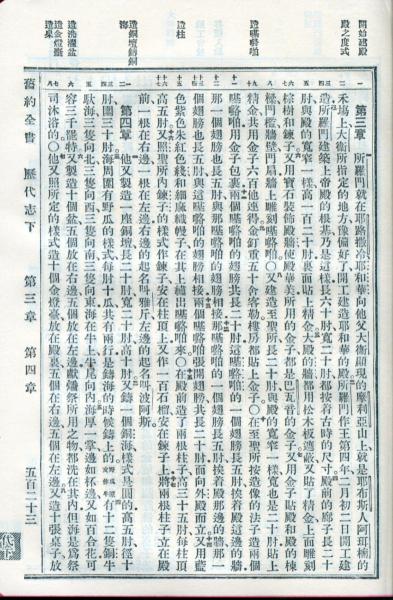 開始建殿
殿之度式
造柱
造銅壇鑄銅海
造洗濯盆
造金燈臺
造桌
第三章 所羅門就在耶路撒冷耶和華向他父大衛顯現的摩利亞山上就是耶布斯人阿珥楠的
禾場上大衛所指定的地方豫備好了開工建造耶和華的殿所羅門作王第四年二月初二日開工建
造所羅門建築上帝的殿根基乃是這樣長六十肘寬二十肘都按着古時的尺寸殿前的廊子長二十
肘與殿的寬窄一樣高一百二十肘裏面貼上精金大殿的牆都用松木板遮蔽又貼了精金上面雕刻
棕樹和鍊子又用寶石裝飾殿牆使殿華美所用的金子都是巴瓦音的金子又用金子貼殿和殿的棟
樑門檻牆壁門扇牆上雕刻〇又建造至聖所長二十肘與殿的寬窄一樣寬也是二十肘貼上
精金共用金子六百他連得金釘重五十舍客勒樓房都貼上金子〇在至聖所按造像的法子造兩個
用金子包裹兩個的翅膀共長二十肘這的一個翅膀長五肘挨着殿這邊的牆
那一個翅膀也長五肘與那的翅膀相接那的一個翅膀長五肘挨着殿那邊的牆那一
個翅膀也長五肘與這的翅膀相接兩個張開翅膀共長二十肘面向外殿而立又用藍
色紫色朱紅色綫和細麻織幔子在其上繡出來〇在殿前造了兩根柱子高三十五肘每柱頂
高五肘又照聖所內鍊子的樣式作鍊子安在柱頂上又作一百石榴安在鍊子上將兩根柱子立在殿
前一根在右邊一根在左邊右邊的起名叫雅斤左邊的起名叫波阿斯
第四章 他又製造一座銅壇長二十肘寬二十肘高十肘又鑄一個銅海樣式是圓的高五肘徑十
肘圍三十肘海周圍有野瓜的樣式每肘十瓜共有兩行是鑄海的時候鑄上的有十二隻銅牛
馱海三隻向北三隻向西三隻向南三隻向東海在牛上牛尾向內海厚一掌邊如杯邊又如百合花可
容三千罷特又製造十個盆五個放在右邊五個放在左邊獻燔祭所用之物都洗在其內但海是爲祭
司沐浴的〇他又照所定的樣式造十個金燈臺放在殿裏五個在右邊五個在左邊又造十張桌子放
舊約全書 歷代志下 第三章 第四章 五百二十三
代下